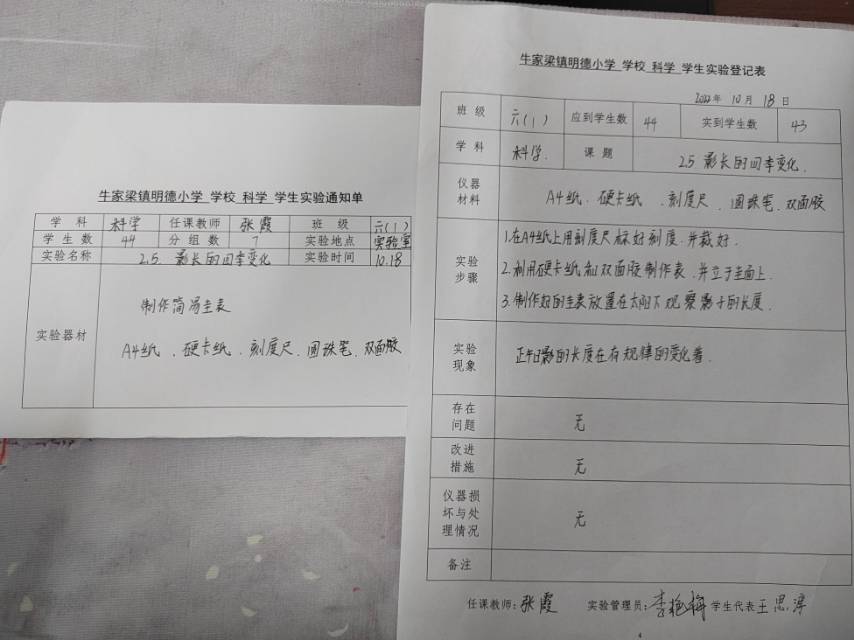 牛家梁镇明德小学 学校 科学 学生实验通知单
学科 科学 任课教师 张霞 班级 六(1)
学生数 44 分组数 7 实验地点 实验室
实验名称 2.5 影长的四季变化 实验时间 10.18
实验器材
制作简易圭表
A4纸、硬卡纸、刻度尺、圆珠笔、双面胶
牛家梁镇明德小学 学校 科学 学生实验登记表
2022年 10月 18日
班级 六(1) 应到学生数 44 实到学生数 43
学科 科学. 课题 2.5 影长的四季变化.
仪器材料 A4纸、硬卡纸、刻度尺、圆珠笔、双面胶
实验步骤
1.在A4纸上用刻度尺标好刻度,并裁好.
2.利用硬卡纸和双面胶制作表,并立于圭面上.
3.制作好的圭表放置在太阳下观察影子的长度.
实验现象 正午日影的长度在有规律的变化着.
存在问题 无
改进措施 无
仪器损坏与处理情况 无
备注
任课教师:张霞 实验管理员:李艳梅 学生代表 王思淳
4